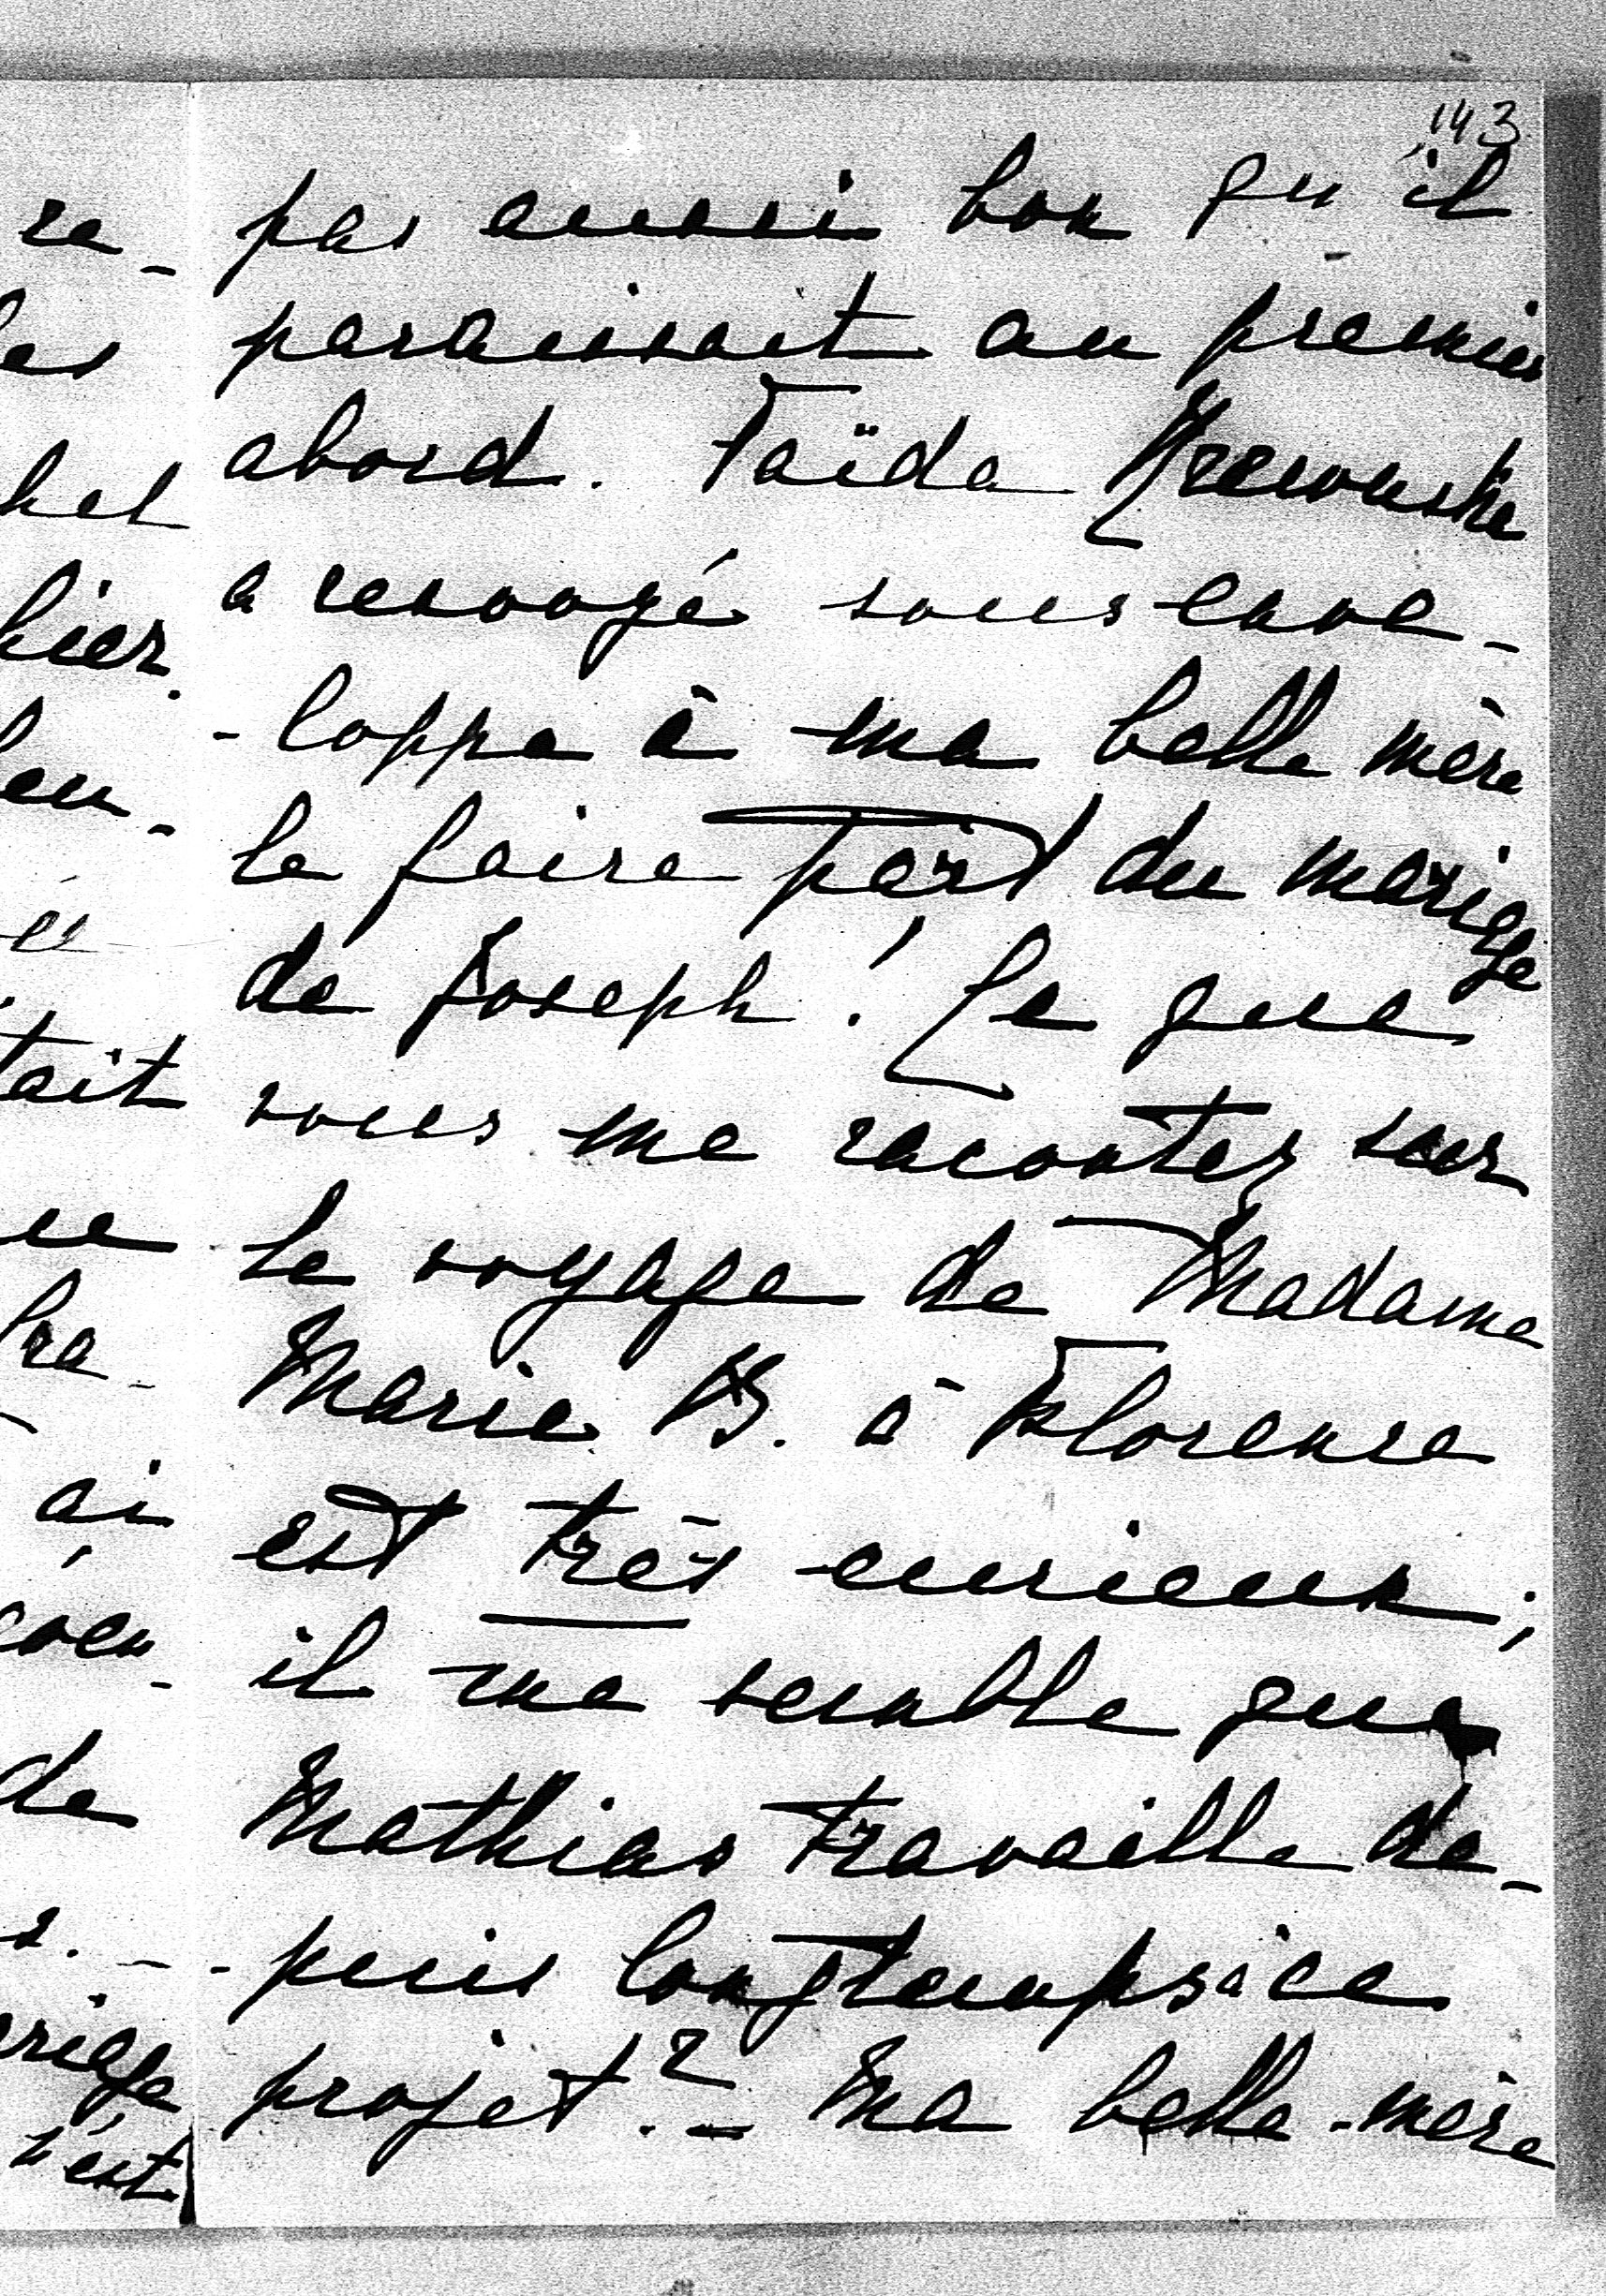 143
pas aussi bon qu'il
paraissait au premier
abord. Taïda Rzewuska
a renvoyé sous enve-
-loppe à ma belle mère
le faire part du mariage
de Joseph! Ce que
vous me racontez sur
le voyage de Madame
Marie B. à Florence
est très curieux;
il me semble que
Mathias travaille de-
-puis longtemps à ce
projet? - Ma belle-mère